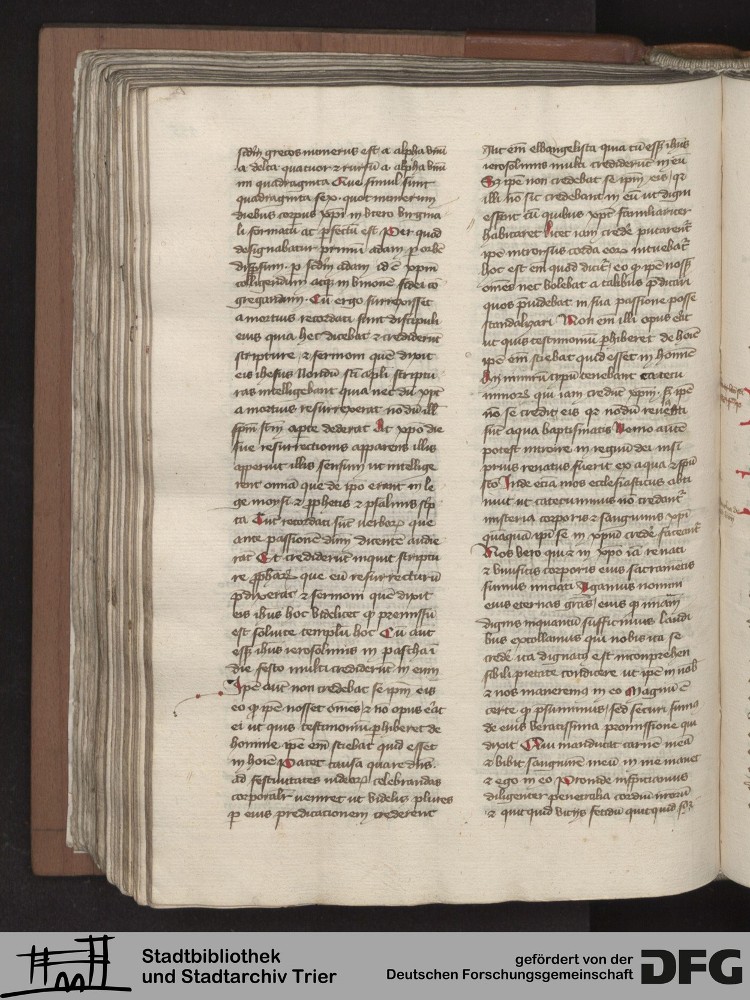 scdm grecos numerus est a alpha vnū
a delta quatuor ⁊ rursū a alpha vnū
mi quadraginta Que simul sunt
quadraginta sex quot numerum
diebus corpus xp̄i in vtero virgina
li formatū ac ꝑfectū est Per quod
designabatur primū adam ꝑ orbē
disꝑsum ꝑ scdm adam id ē xp̄m
colligendum atqꝫ in vnione fidei cō
gregandum Cū ergo surrexisset
a mortuis recordati sunt discipuli
eius quia hec dicebat ⁊ crediderūt
scripture ⁊ sermoni quē dixit
eis ihesus Nondū sc̄i apli scriptu
ras intelligebant quia nec dū xp̄c
a mortuis resurrexerat nōdū ill
spm̄ scm̄ apte dederat At xp̄o die
sue resurrectionis apparens illis
apperuit illis sensum ut intellige
rent omīa que de ipo erant in le
ge moysi ⁊ ꝓphetis ⁊ psalmis scp̄
ta Tūc recordati sūt verborꝫ que
ante passionē dūm dicentē audie
rāt Et crediderūt inquit scriptu
re ꝓphaꝝ que eū resurrecturū
p̄dixerat ⁊ sermoni quē dixit
eis ihus hoc videlicet ꝙ premissū
est soluite templū hoc Cū aūt
essꝫ ihus ierosolimis in pascha ī
die festo multi crediderūt in eum
Ipē aūt non credebat se ipm eis
eo ꝙ ipē nosset omēs ⁊ nō opus eāt
ei ut quis testimoniū ꝑhiberet de
homine ipē em̄ sciebat quid esset
in hoīe Patet causa quare dn̄s
ad festiuitates iudeoꝝ celebrandas
corporalr̄ veniret ut videlicꝫ plures
ꝑ eius predicacionem crederent
Ait em̄ ewangelista quia cū essꝫ ihus
ierosolimis multi crediderūt in eū
Sꝫ ipē non credebat se ipm̄ eis qꝛ
illi nō sic credebant in eū ut digni
essent cū quibus xp̄c familiariter
habitaret licet iam crede putarent
ipē introrsus corda eoꝝ intuebat
hoc est em̄ quod dicit eo ꝙ ipē nossꝫ
omēs nec volebat a talibus p̄dicari
quos p̄uidebat in sua passione posse
scandalizari Non em̄ illi opus eāt
ut quis testimoniū ꝑhiberet de hoīe
ipē em̄ sciebat quid esset in homīe
In numerū tenebant catecu
minorꝫ qui iam credūt xp̄m sꝫ ipē
nō se credit eis qꝛ nōdū renati
sūt aqua baptismatis Nemo autē
potest introire in regnū dei nisi
prius renatus fuerit ex aqua ⁊ spū
scō Inde etiā mos ecclesiasticus obti
nuit ut catecuminus nō credant
misteria corporis ⁊ sanguinis xp̄i
quāquā ipi se in xpm̄ crede fateant
Nos vero qui ⁊ in xp̄o iā renati
⁊ viuificis corporis eius sacramētis
sumus iniciati Agamus nomini
eius eternas grās eius ꝙ imam
dignis inquantū sufficimus laudi
bus extollamus qui nobis ita se
crede ita dignatꝫ est incomprehen
sibili pietate condicere ut ipē in nob
⁊ nos maneremꝰ in eo Magnū ē
certe ꝙ psumimus sed securi sumꝰ
de eius veracissima promissione qui
dixit Qui manducat carnē meā
⁊ bibit sanguinē meū in me manet
⁊ ego in eo Proinde inspiciamus
diligenter penetralia cordiū nr̄orū
⁊ quicquid vicijs fetidū quicquid
Stadtbibliothek
und Stadtarchiv Trier
gefördert von der
Deutschen Forschungsgemeinschaft
DFG